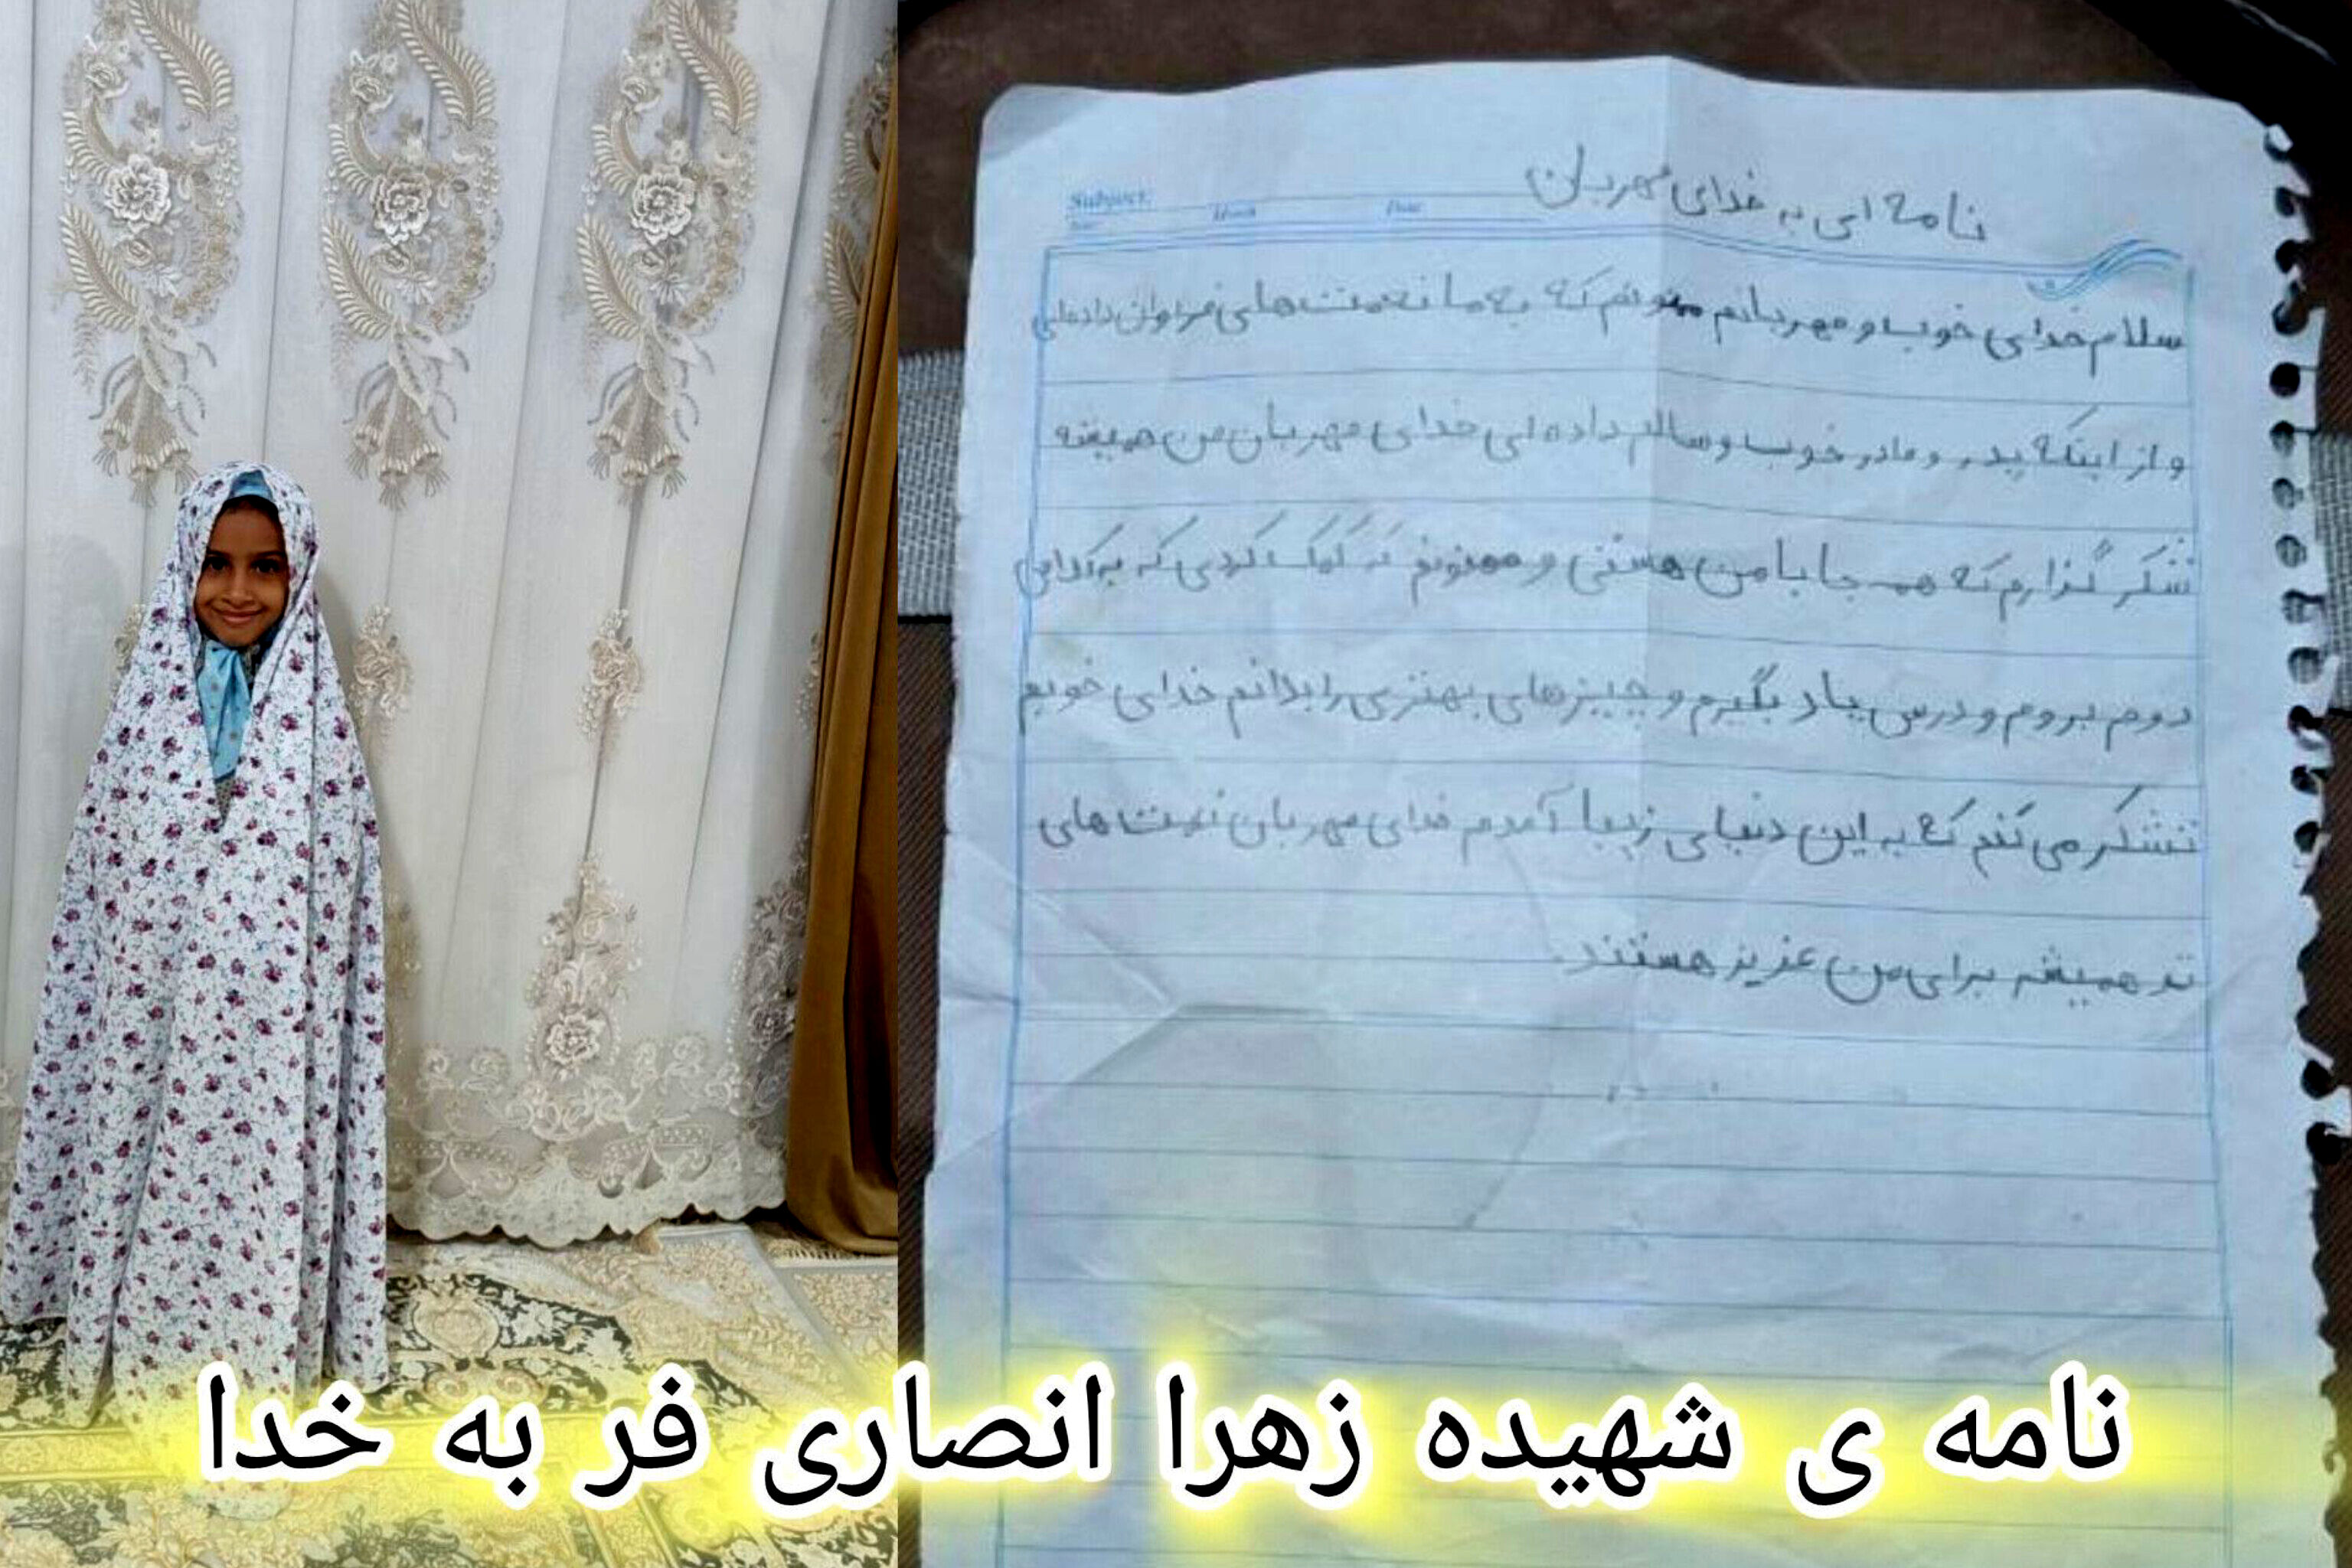 نامه ای به خدای مهربان
Subject:
Date
سلام خدای خوب و مهربانم ممنونم که به ما نعمت های فراوان داده ای
و از اینکه پدر و مادر خوب و سالم داده ای خدای مهربان من همیشه
شکر گذارم که همه جا با من هستی و ممنونم که کمک کردی که به
دوم بروم و درس یاد بگیرم و چیزهای بهتری را بدانم خدای خوبم
تشکر می کنم که به این دنیای زیبا آمدم خدای مهربان نعمت های
تو همیشه برای من عزیز هستند.
نامه ی شهیده زهرا انصاری فر به خدا